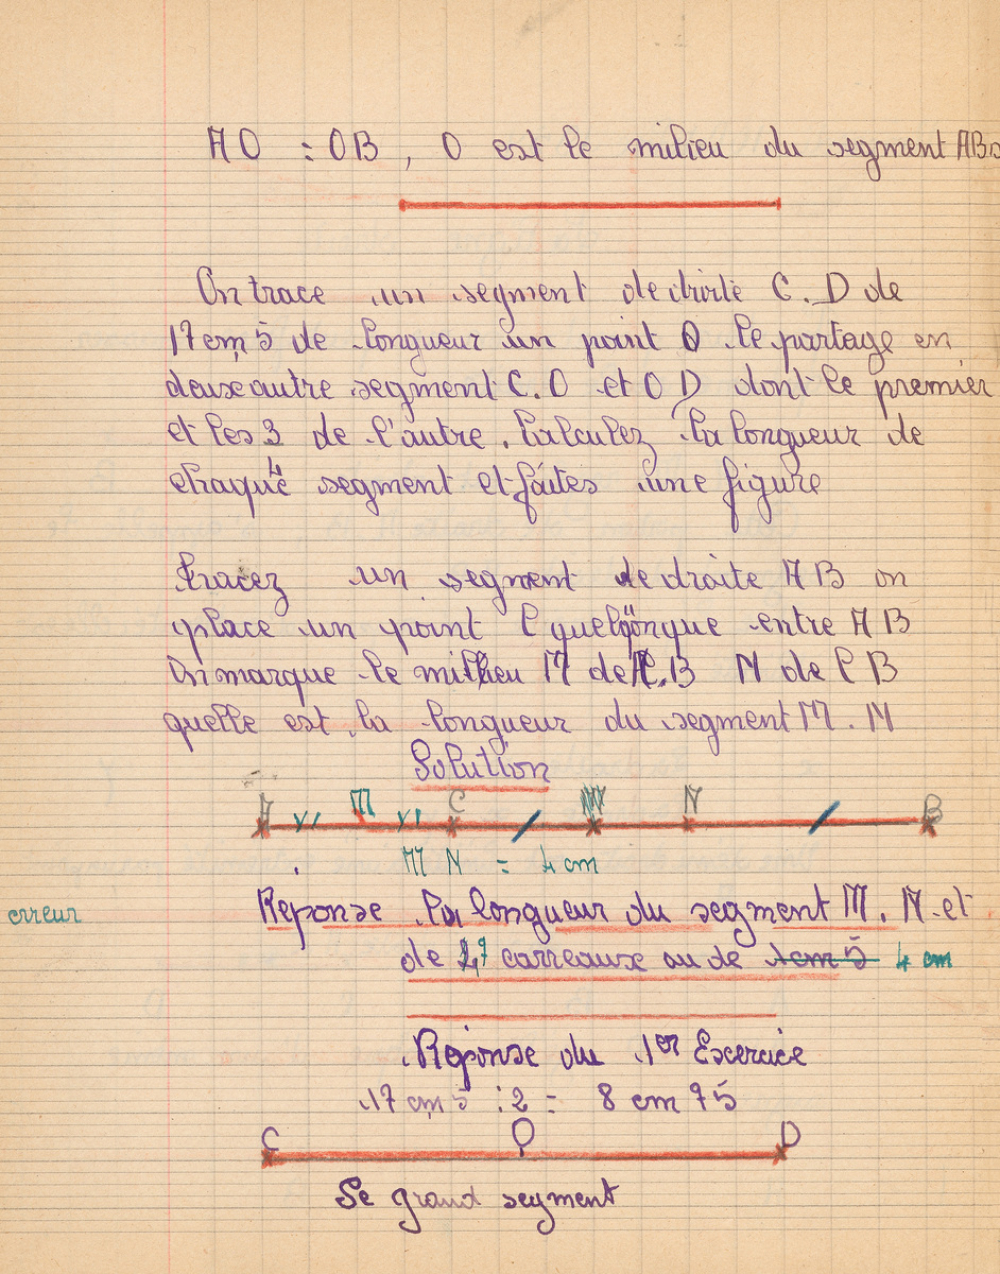 AO = OB, O est le milieu du segment AB.
On trace un segment de droite C.D de
17 cm 5 de longueur un point O le partage en
deux autre segment C.O et O D dont le premier
et les 3/4 de l'autre. Calculez la longueur de
chaque segment et faites une figure
tracez un segment de droite A B on
place un point C quelqonque entre A B
On marque le milieu M de A.B N de C B
quelle est la longueur du segment M.N
Solution
A M C M N B
M N = 4 cm
erreur
Reponse La longueur du segment M.N et
de 2,7 carreaux ou de 1cm 5 4 cm
Réponse du 1er Excercice
17 cm 5 : 2 = 8 cm 75
C O D
Le grand segment